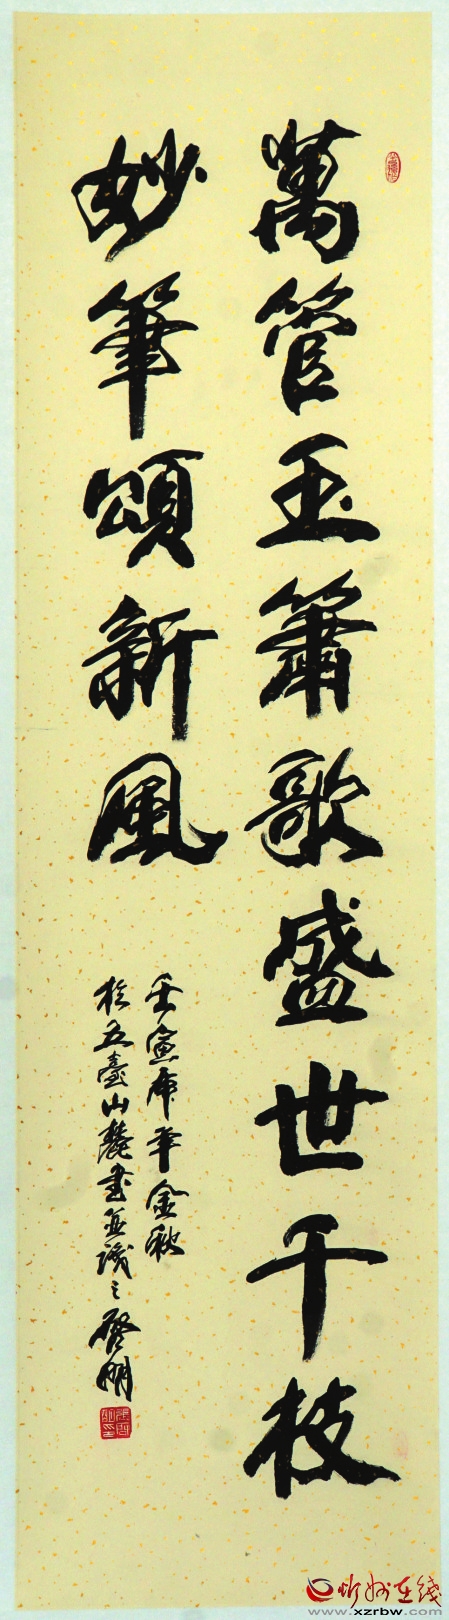 萬管玉簫歌盛世千枝
妙筆頌新風
壬寅虎年金秋
於五臺山麓書並識之啓明
忻州在线
www.xzrbw.com